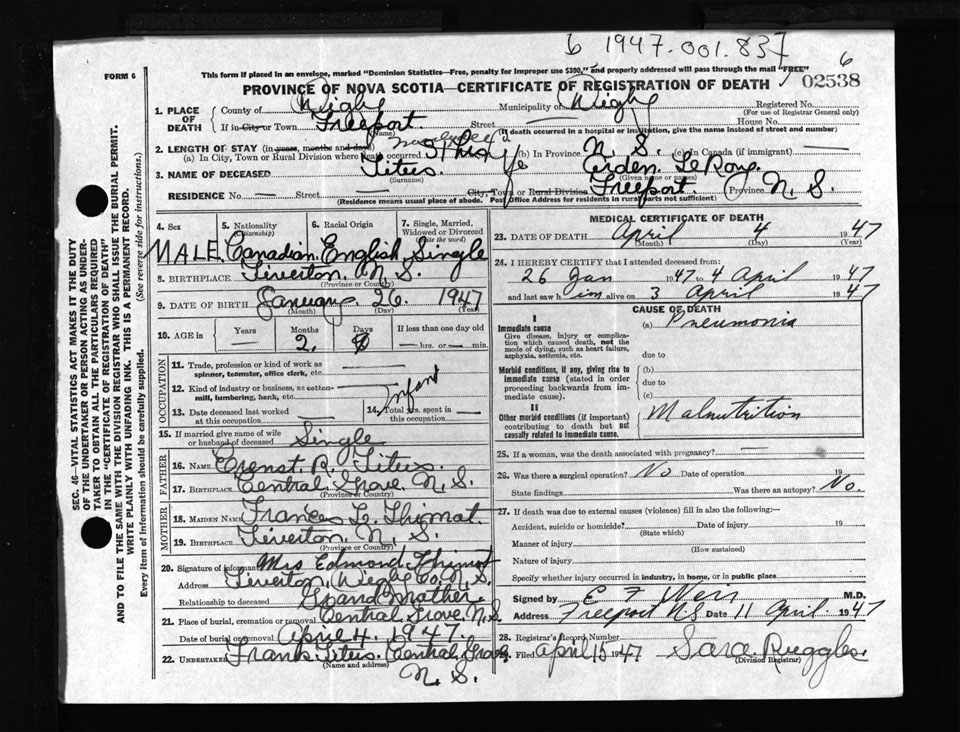 6 1947.001.837
6
FORM 6
This form if placed in an envelope, marked "Dominion Statistics—Free, penalty for improper use $300," and properly addressed will pass through the mail "FREE"
02538
PROVINCE OF NOVA SCOTIA—CERTIFICATE OF REGISTRATION OF DEATH
1. PLACE OF DEATH County of Digby Municipality of Digby Registered No.
(For use of Registrar General only)
If in City or Town Freeport Street House No.
(Name) (If death occurred in a hospital or institution, give the name instead of street and number)
2. LENGTH OF STAY (in years, months and days)
(a) In City, Town or Rural Division where death occurred (b) In Province N. S. (c) In Canada (if immigrant) —
3. NAME OF DECEASED Titus Arden LeRoy
(Surname) (Given name or names)
RESIDENCE No. — Street — City, Town or Rural Division Freeport Province N. S.
(Residence means usual place of abode. Post Office Address for residents in rural parts not sufficient)
4. Sex 5. Nationality (Citizenship) 6. Racial Origin 7. Single, Married, Widowed or Divorced (Write the word)
MALE Canadian English Single
8. BIRTHPLACE Tiverton, N. S.
(Province or Country)
9. DATE OF BIRTH January 26 1947
(Month) (Day) (Year)
10. AGE Years Months Days If less than one day old
— 2 — hrs. or — min.
OCCUPATION
11. Trade, profession or kind of work as spinner, teamster, office clerk, etc. —
12. Kind of industry or business, as cotton-mill, lumbering, bank, etc. Infant
13. Date deceased last worked at this occupation —
14. Total yrs. spent in this occupation —
15. If married give name of wife or husband of deceased Single
FATHER
16. NAME Ernest R. Titus
17. BIRTHPLACE Central Grove N. S.
(Province or Country)
MOTHER
18. MAIDEN NAME Frances L. Thimot
19. BIRTHPLACE Tiverton N. S.
(Province or Country)
20. Signature of informant Mrs Edmond Thimot
Address Tiverton, Digby Co. N. S.
Relationship to deceased Grand Mother
21. Place of burial, cremation or removal Central Grove N. S.
Date of burial or removal April 4. 1947.
22. UNDERTAKER Frank Titus Central Grove
(Name and address)
N. S.
MEDICAL CERTIFICATE OF DEATH
23. DATE OF DEATH April 4 1947
(Month) (Day) (Year)
24. I HEREBY CERTIFY that I attended deceased from:
26 Jan 1947 to 4 April 1947
and last saw him alive on 3 April 1947
CAUSE OF DEATH
I
Immediate cause (a) Pneumonia
Give disease, injury or complication which caused death, not the mode of dying, such as heart failure, asphyxia, asthenia, etc. due to
Morbid conditions, if any, giving rise to immediate cause (stated in order proceeding backwards from immediate cause). (b)
due to
(c)
II
Other morbid conditions (if important) contributing to death but not causally related to immediate cause. Malnutrition
25. If a woman, was the death associated with pregnancy? —
26. Was there a surgical operation? No Date of operation 19
State findings Was there an autopsy? No.
27. If death was due to external causes (violence) fill in also the following:
Accident, suicide or homicide? Date of injury 19
(State which)
Manner of injury
(How sustained)
Nature of injury
Specify whether injury occurred in industry, in home, or in public place
Signed by E F Weir M.D.
Address Freeport NS Date 11 April 1947
28. Registrar's Record Number
29. Filed April 15 1947 Sara Ruggles.
(Division Registrar)
SEC. 46—VITAL STATISTICS ACT MAKES IT THE DUTY
OF THE UNDERTAKER OR PERSON ACTING AS UNDER-
TAKER TO OBTAIN ALL THE PARTICULARS REQUIRED
IN THE "CERTIFICATE OF REGISTRATION OF DEATH"
AND TO FILE THE SAME WITH THE DIVISION REGISTRAR WHO SHALL ISSUE THE BURIAL PERMIT.
WRITE PLAINLY WITH UNFADING INK. THIS IS A PERMANENT RECORD.
Every item of information should be carefully supplied. (See reverse side for instructions.)